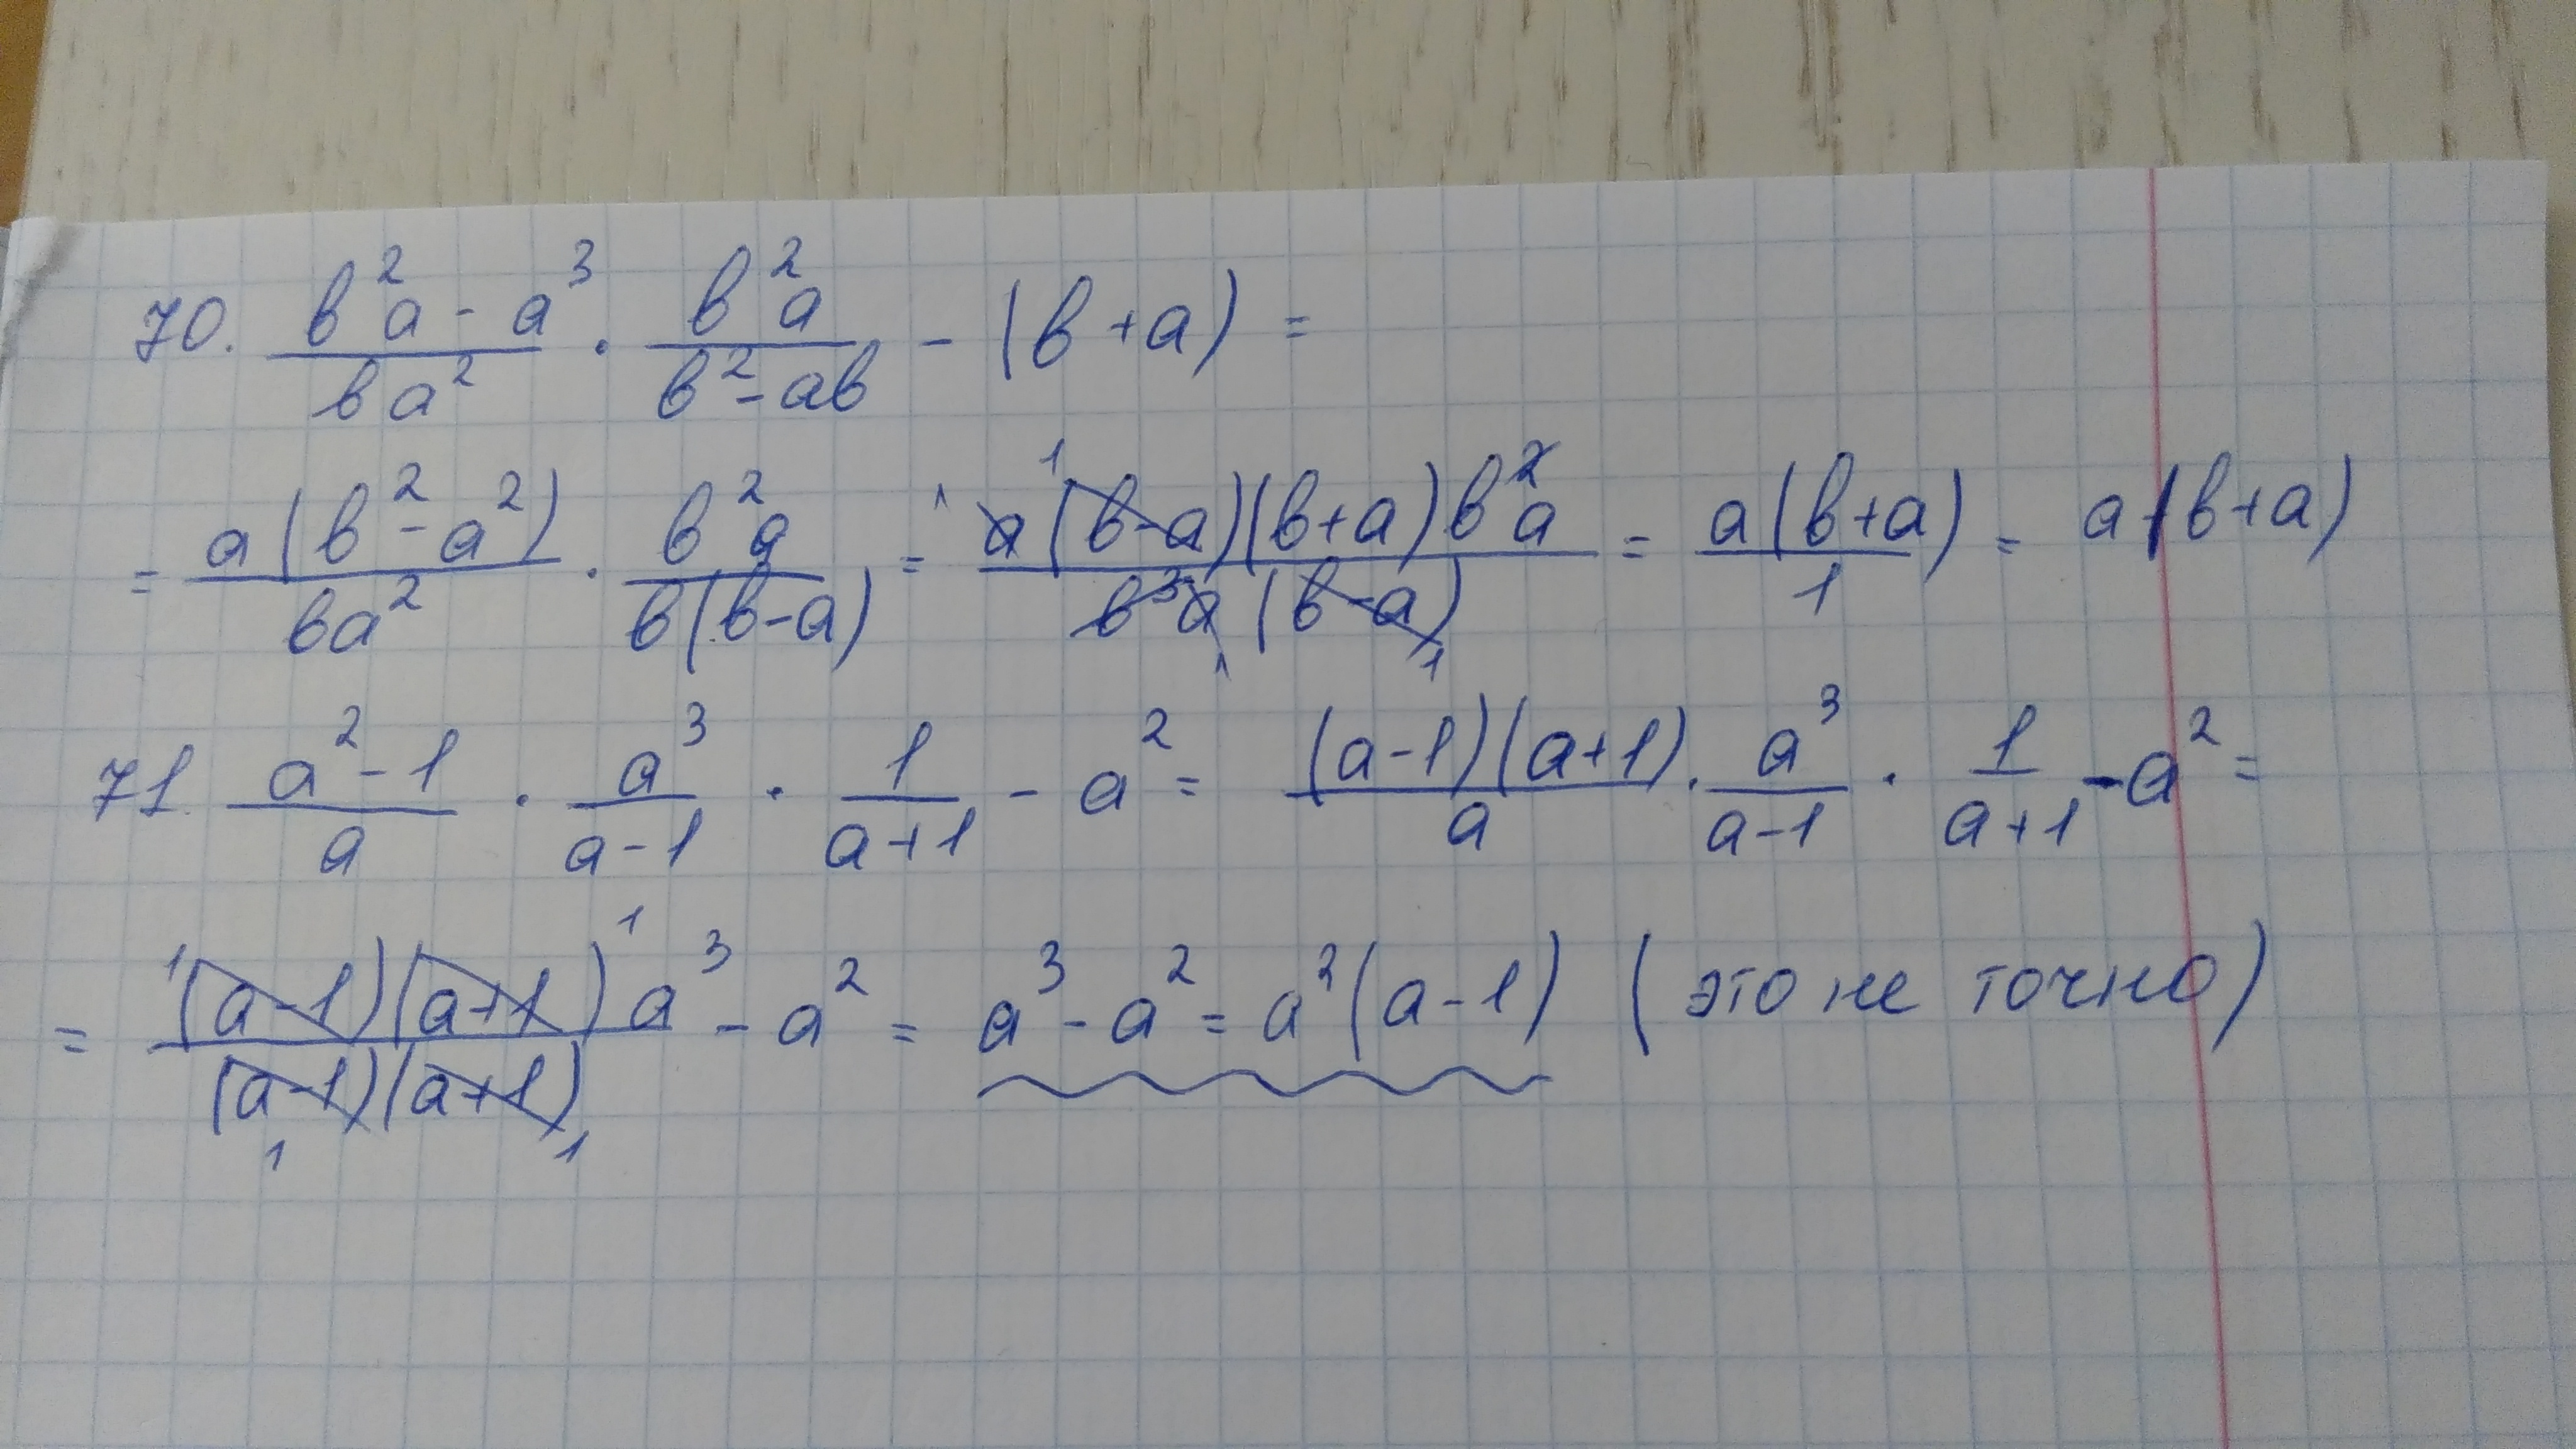 70. (в²a - a³)/(вa²) · (в²a)/(в² - aв) - (в + a) =
= (a(в² - a²))/(вa²) · (в²a)/(в(в - a)) = (a(в - a)(в + a)в²a)/(в²a(в - a)) = (a(в + a))/1 = a(в + a)
71. (a² - 1)/a · a³/(a - 1) · 1/(a + 1) - a² = ((a - 1)(a + 1))/a · a³/(a - 1) · 1/(a + 1) - a² =
= ((a - 1)(a + 1)a³)/((a - 1)(a + 1)) - a² = a³ - a² = a²(a - 1) (это не точно)